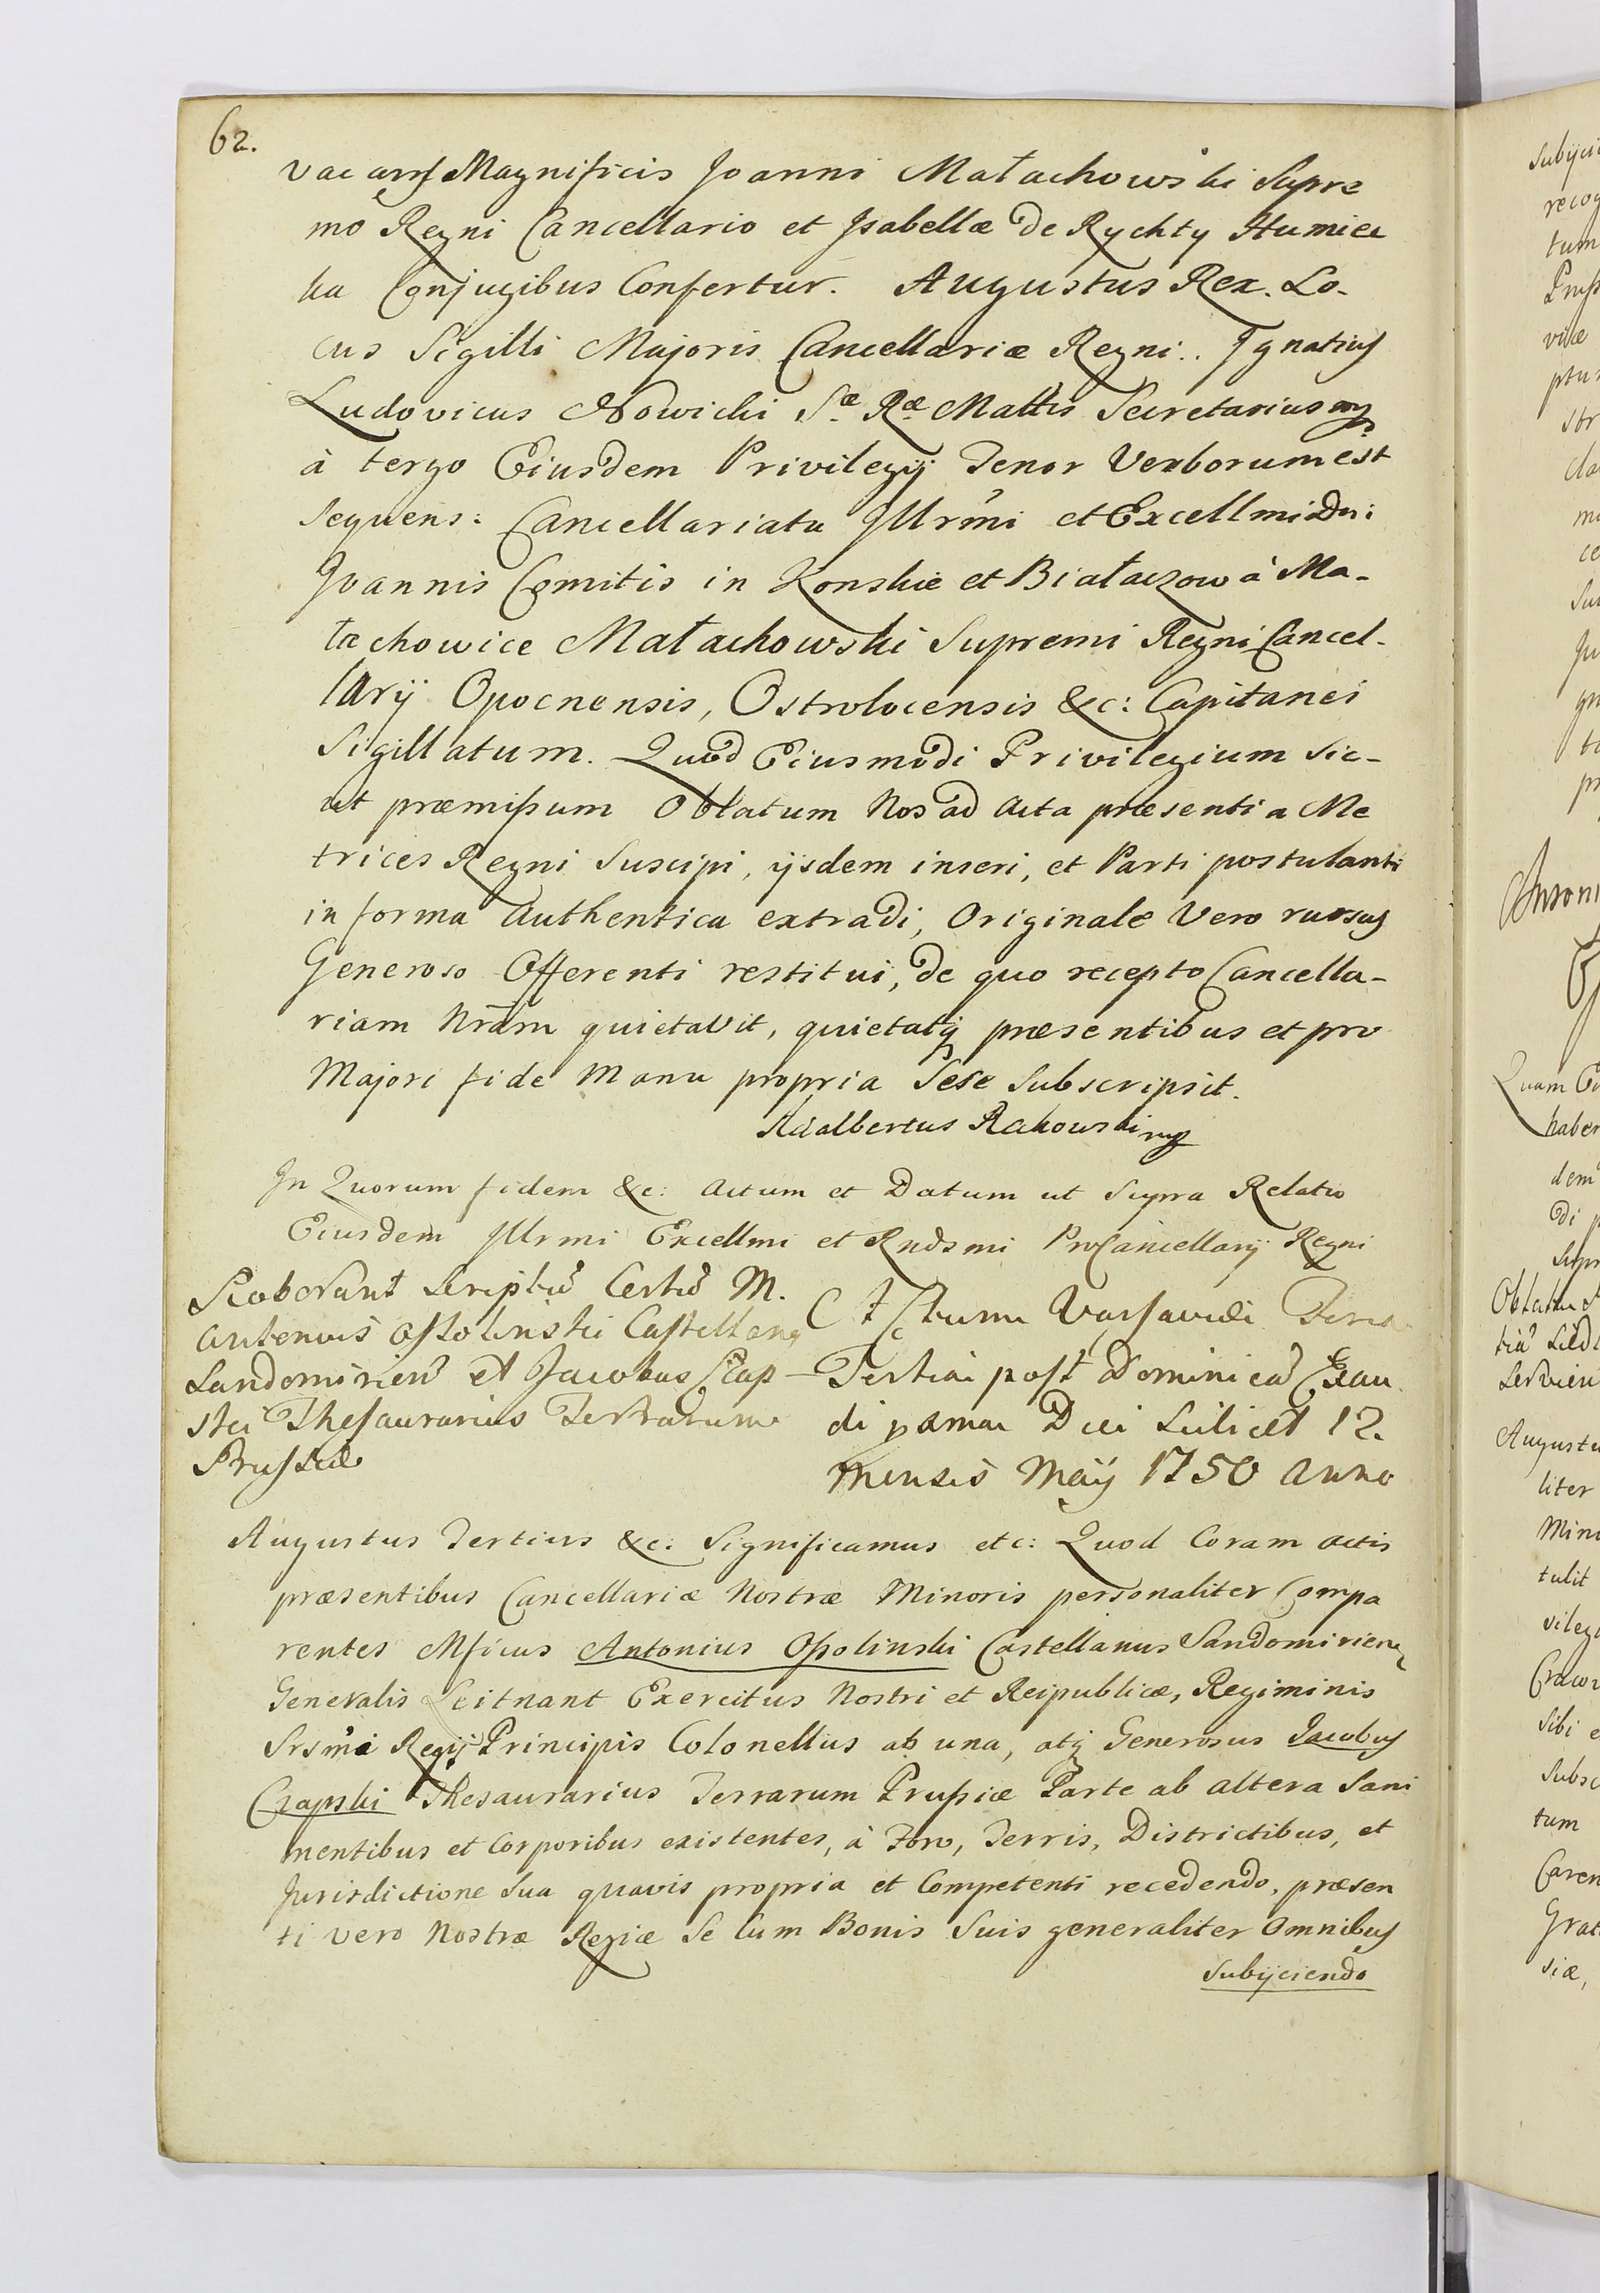 62.
vacans Magnificis Joanni Małachowski Supre
mo Regni Cancellario et Isabellæ de Rychty Humiec
ka Conjugibus Confertur. Augustus Rex. Lo-
cus Sigilli Majoris Cancellariæ Regni.. Ignatius
Ludovicus Nowicki Sæ Ræ Mattis Secretarius mp
à tergo Eiusdem Privilegij Tenor Verborum est
sequens: Cancellariatu Illrmi et Excellmi Dni
Joannis Comitis in Konskie et Białaczow à Ma-
łachowice Małachowski Supremi Regni Cancel-
larij Opocnensis, Ostrolocensis &c: Capitanei
Sigillatum. Quod Eiusmodi Privilegium sic-
ut præmissum Oblatum Nos ad Acta præsentia Me
trices Regni Suscipi, ijsdem inseri, et Parti postulanti
in forma Authentica extradi, Originale Vero rursus
Generoso Offerenti restitui, de quo recepto Cancella-
riam Nram quietavit, quietatq præsentibus et pro
Majori fide Manu propria Sese Subscripsit.
Adalbertus Rakowski mp
In Quorum fidem &c: Actum et Datum ut Supra Relatio
Eiusdem Illrmi Excellmi et Rndsmi ProCancellarij Regni
Roborant Scriptu Certu M.
Antonius Ossolinski Castellanq
Sandomirien et Jacobus Czap-
ski Thesaurarius Terrarum
Prussiæ
Actum Varsaviæ Feria
Tertia post Dominica Exau
di pxma Die Scilicet 12.
mensis Maÿ 1750 Anno
Augustus Tertius &c: Significamus etc: Quod Coram Actis
præsentibus Cancellariæ Nostræ Minoris personaliter Compa
rentes Mficus Antonius Ossolinski Castellanus Sandomirien
Generalis Leitnant Exercitus Nostri et Reipublicæ, Regiminis
Srsmi Regij Principis Colonellus ab una, atq Generosus Jacobus
Czapski Thesaurarius Terrarum Prussiæ Parte ab altera Sani
mentibus et Corporibus existentes, à Foro, Terris, Districtibus, et
Jurisdictione Sua quavis propria et Competenti recedendo, præsen
ti vero Nostræ Regiæ Se Cum Bonis Suis generaliter Omnibus
Subijciendo